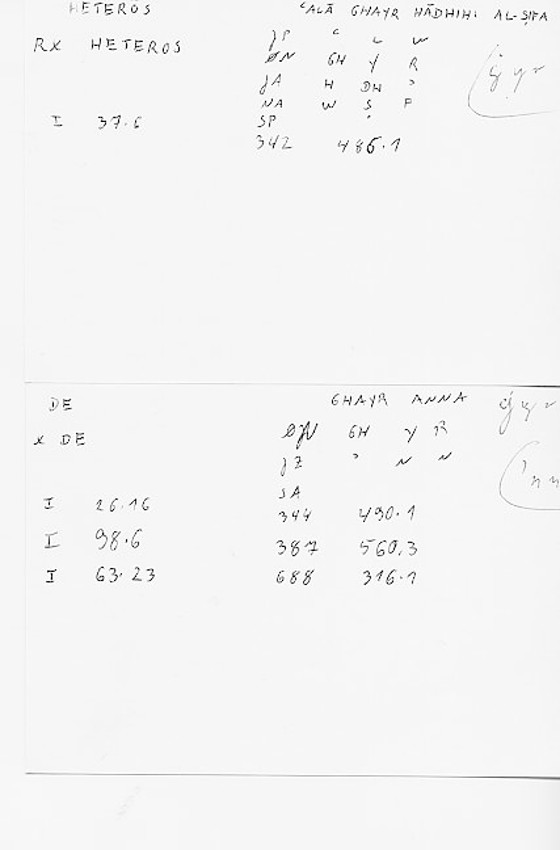 HETEROS ʿALĀ GHAYR HĀDHIHI AL-ṢIFA
RX HETEROS
ʿ L W
ØN GH Y R
JA H DH ʾ
NA W Ṣ F
I 37.6 SP
342 486.1
DE GHAYR ANNA
X DE ØN GH Y R
JZ ʾ N N
SA
I 26.16 344 490.1
I 98.6 387 560.3
I 63.23 688 316.1